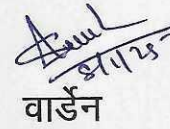 8/1/25
वार्डेन